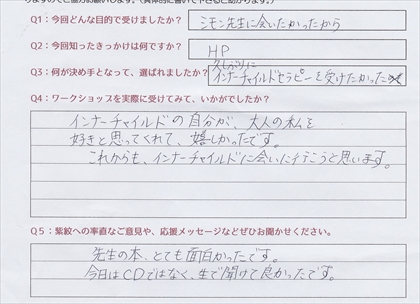 りますのでご協力お願いします。（具体的に書いて下さると助かります。）
Q1：今回どんな目的で受けましたか？ シモン先生に会いたかったから
Q2：今回知ったきっかけは何ですか？ HP
久しぶりに
Q3：何が決め手となって、選ばれましたか？ インナーチャイルドセラピーを受けたかった
Q4：ワークショップを実際に受けてみて、いかがでしたか？
インナーチャイルドの自分が、大人の私を
好きと思ってくれて、嬉しかったです。
これからも、インナーチャイルドに会いに行こうと思います。
Q5：紫紋への率直なご意見や、応援メッセージなどぜひお聞かせください。
先生の本、とても面白かったです。
今日はCDではなく、生で聞けて良かったです。